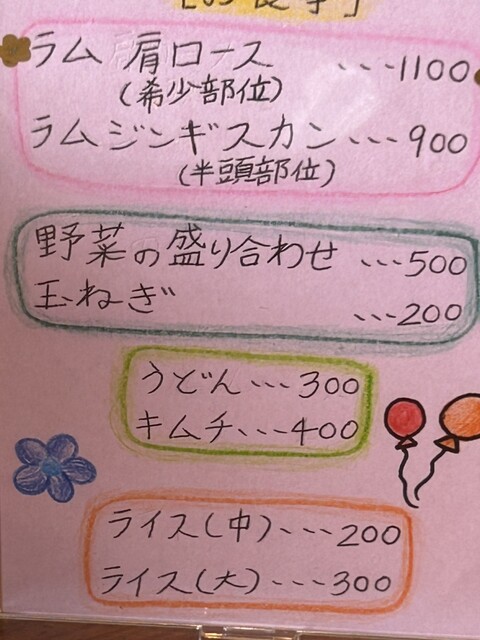 ラム 肩ロース ...1100
(希少部位)
ラムジンギスカン...900
(半頭部位)
野菜の盛り合わせ ...500
玉ねぎ ...200
うどん...300
キムチ...400
ライス(中)...200
ライス(大)...300